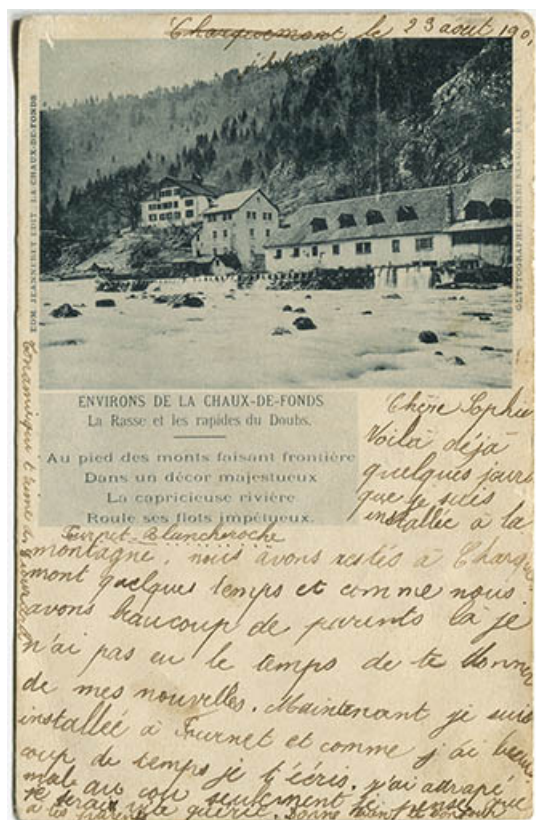 Charquemont le 23 août 190
EDM. JEANNERET EDIT. LA CHAUX-DE-FONDS
GLYPTOGRAPHIE HENRI BÂLE
ENVIRONS DE LA CHAUX-DE-FONDS
La Rasse et les rapides du Doubs.
Au pied des monts faisant frontière
Dans un décor majestueux
La capricieuse rivière
Roule ses flots impétueux.
Chère Sophie
Voilà déjà
quelques jours
que je suis
installée à la
Furnet-Blancheroche
montagne, nous avons restés à Charque
mont quelques temps et comme nous
avons beaucoup de parents là je
n'ai pas eu le temps de te donner
de mes nouvelles. Maintenant je suis
installée à Furnet et comme j'ai beau
coup de temps je t'écris. j'ai attrapé
mal au cou seulement je pense que
je serai vite guérie. bonjour
à tes parents